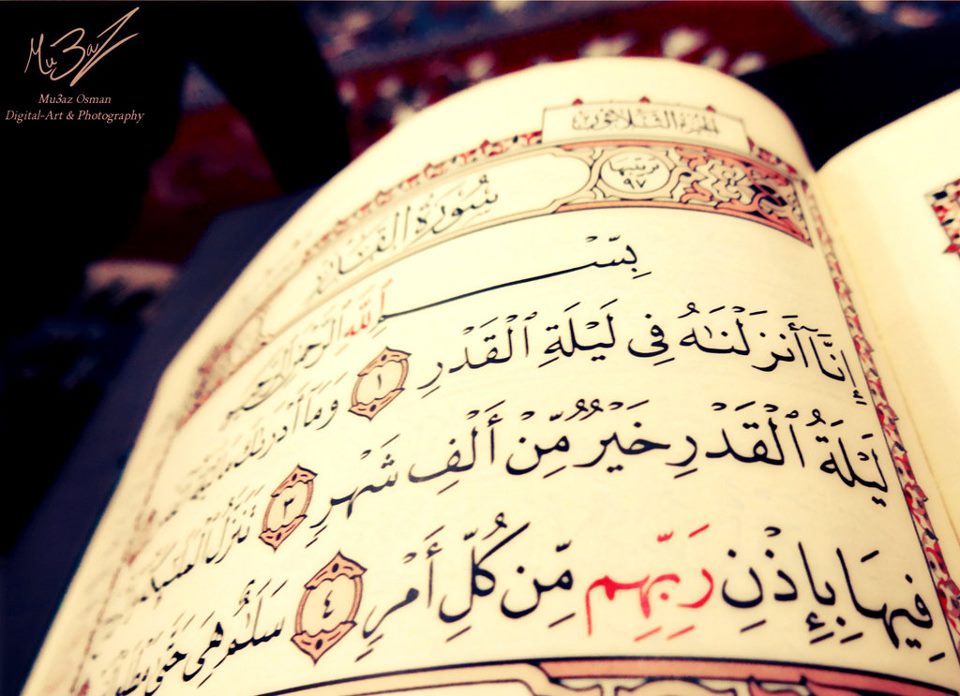 Mu3aZ
Mu3az Osman
Digital-Art & Photography
الجزء الثلاثون
ترتيبها
٩٧
سُورَةُ القَدْرِ
بِسْـــــمِ ٱللَّهِ الرَّحْمَٰنِ الرَّحِيمِ
إِنَّآ أَنزَلْنَٰهُ فِى لَيْلَةِ ٱلْقَدْرِ ١ وَمَآ أَدْرَىٰكَ مَا
لَيْلَةُ ٱلْقَدْرِ خَيْرٌ مِّنْ أَلْفِ شَهْرٍ ٣ تَنَزَّلُ
فِيهَا بِإِذْنِ رَبِّهِم مِّن كُلِّ أَمْرٍ ٤ سَلَٰمٌ هِىَ حَتَّىٰ